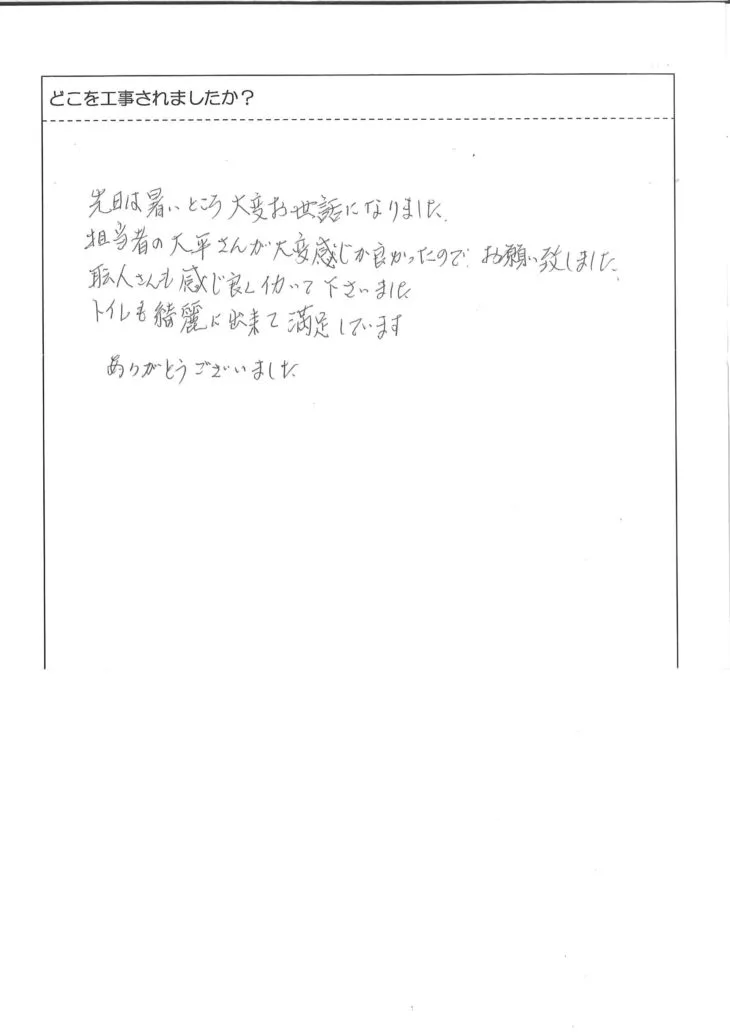 どこを工事されましたか？
先日は暑いところ大変お世話になりました.
担当者の大平さんが大変感じが良かったので. お願い致しました.
職人さんも感じ良く働いて下さいました
トイレも綺麗に出来て満足しています
ありがとうございました